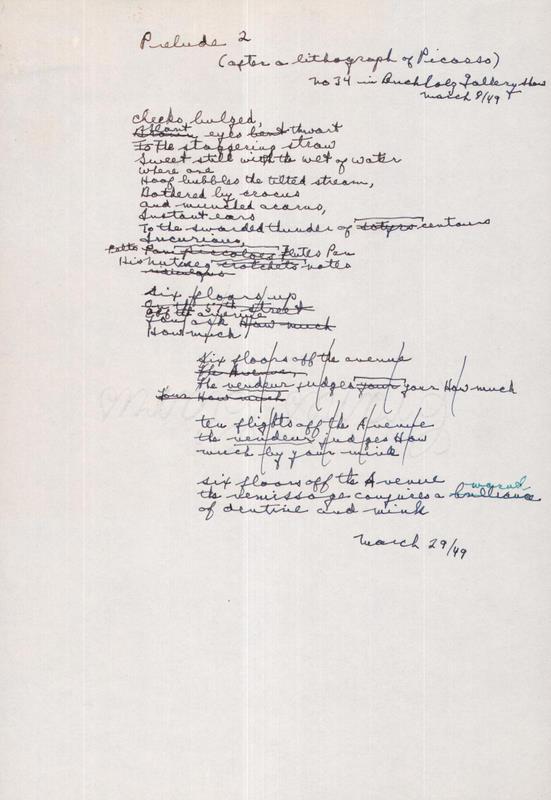 Prelude 2
(after a lithograph of Picasso)
no 34 in Buchholz Gallery show
March 8/49
cheeks bulged,
aslant eyes bent thwart
To the staggering straw
Sweet still with the wet of water
where are
Hoof bubbles the tilted stream,
Bothered by crocus
and munched acorns,
Instant ears
To the swarded thunder of satyrs centaurs
Incurious,
Pan piccoloes flutes Pan
His nutmeg crotchets notes
six floors up
On the 57th Street
off the avenue
You ask How much
How much
six floors off the avenue
The Avenue,
The vendeur judges your your How much
Your How much
ten flights off the Avenue
the vendeur judges How
much by your mink
six floors off the Avenue
the vernissage conjures a brilliance
of dentine and mink
March 29/49